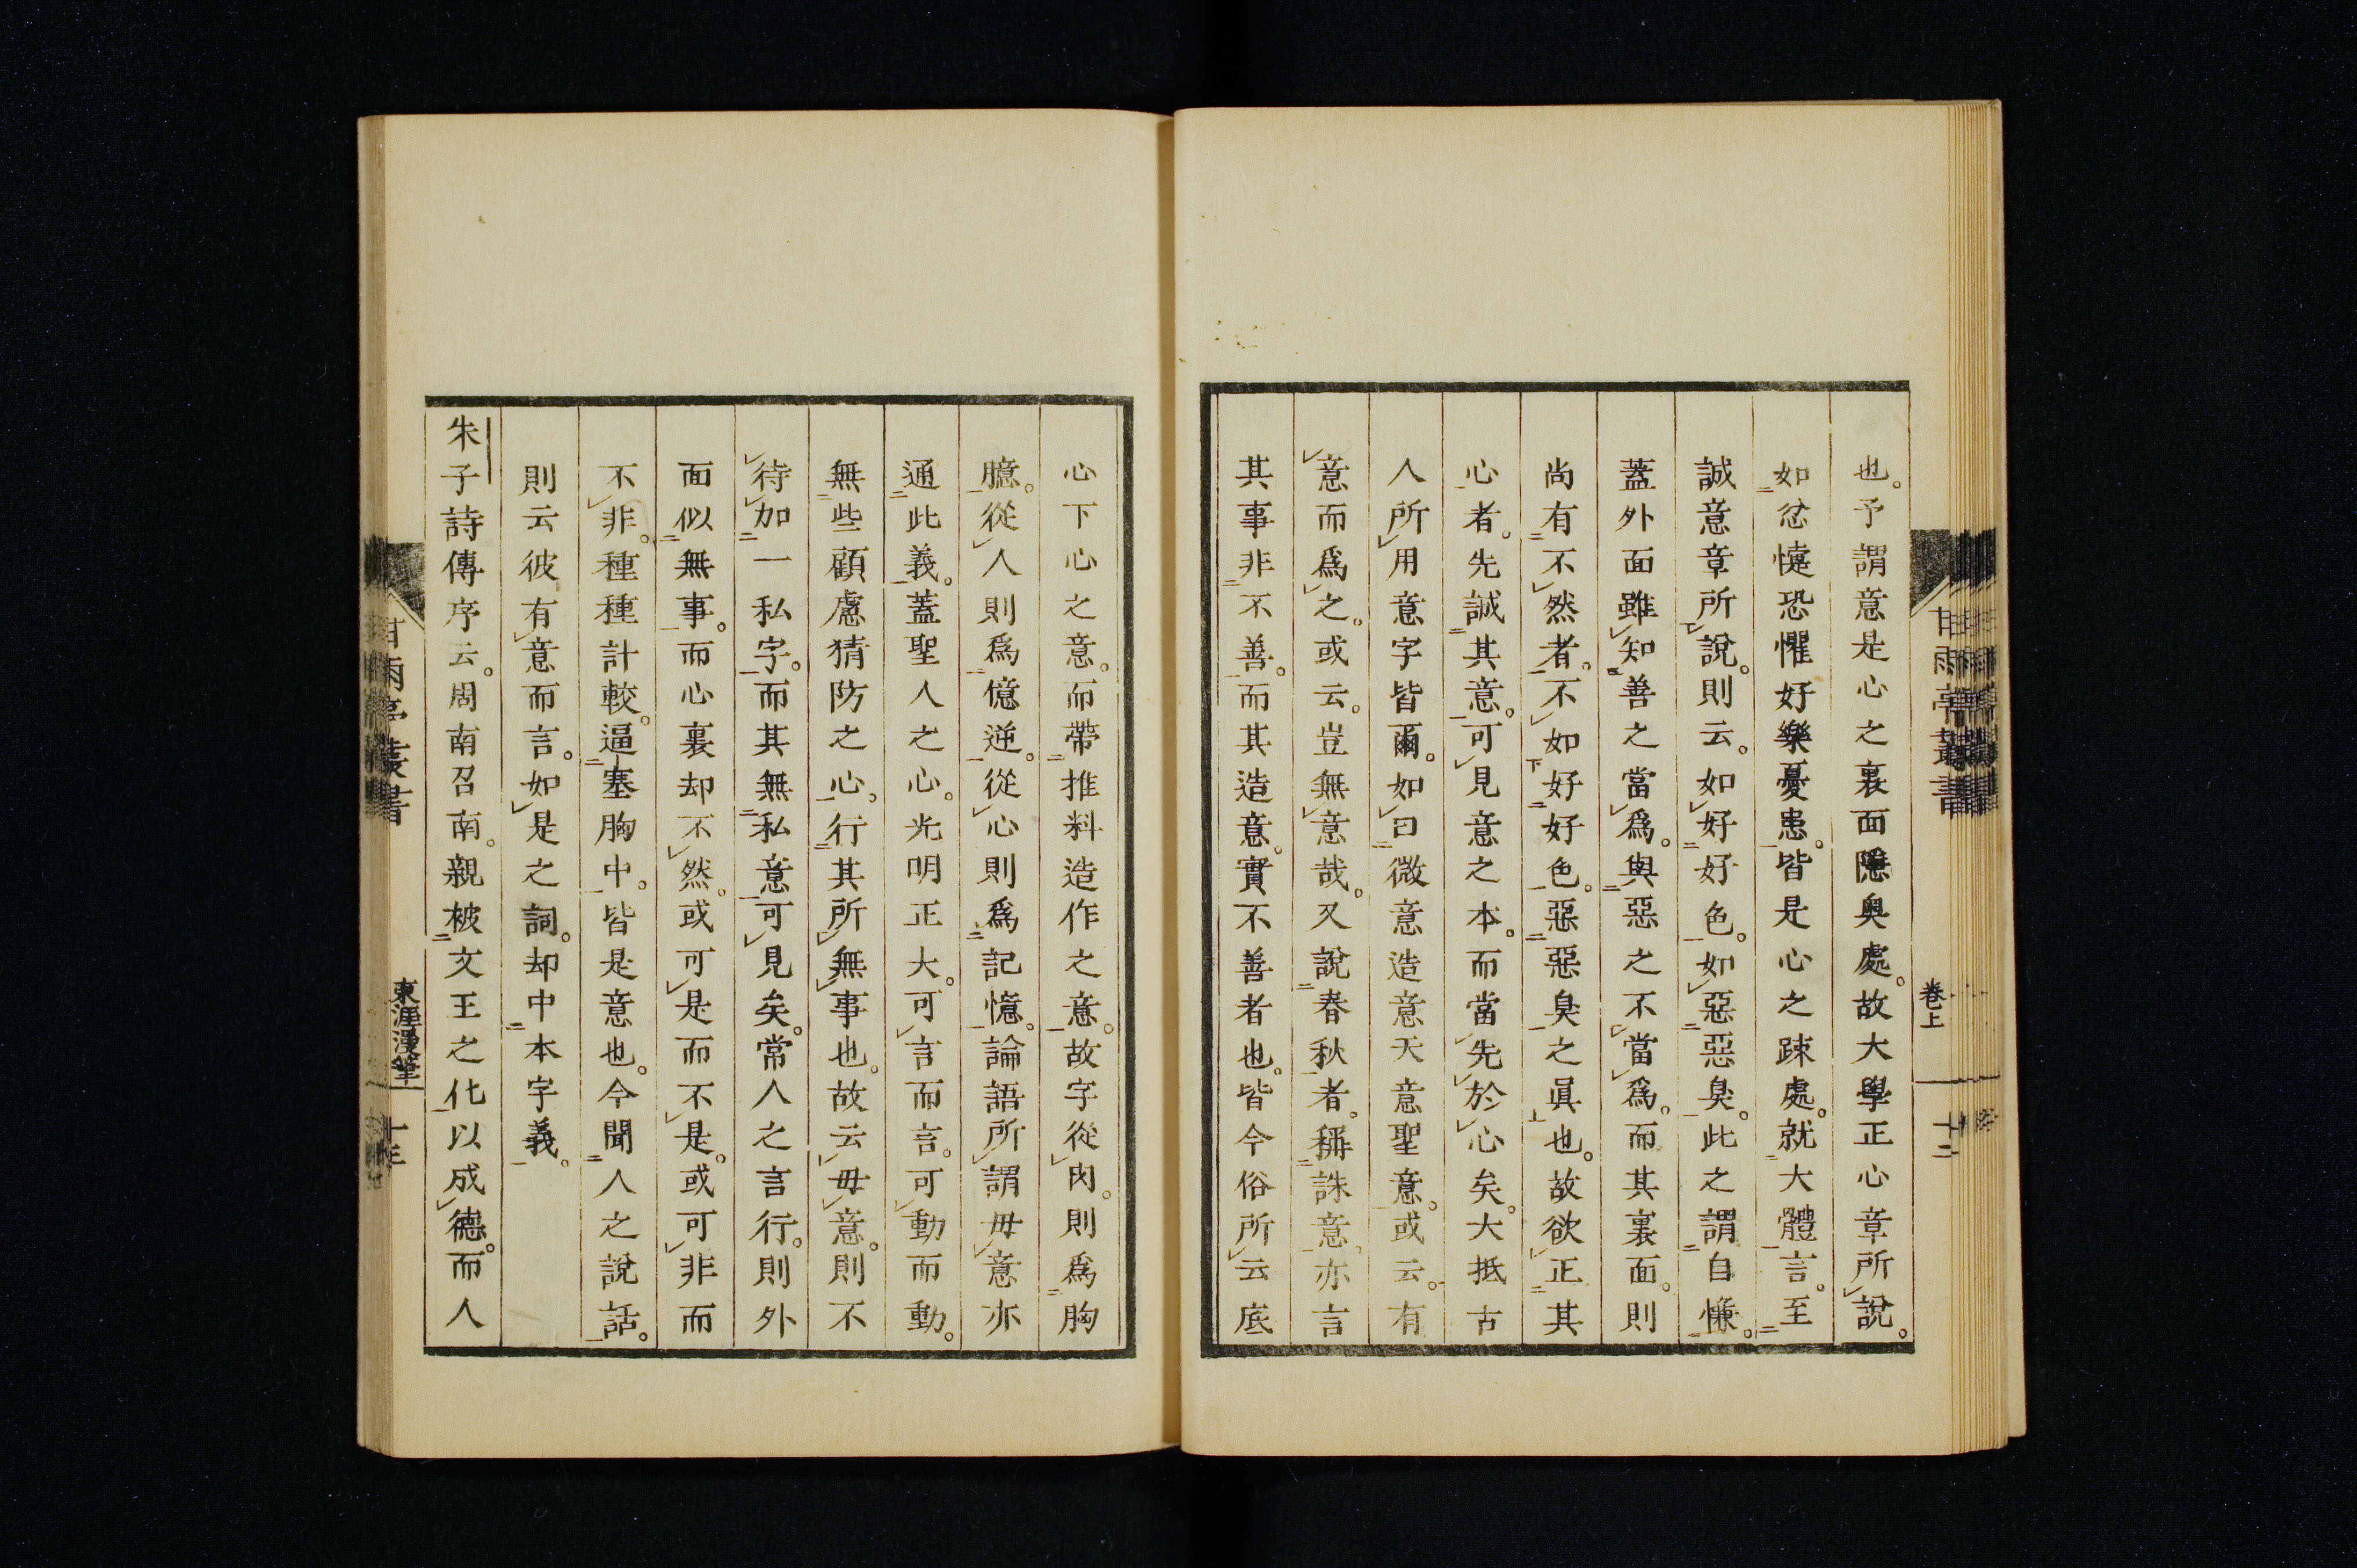 也。予謂意是心之裏面隱奧處。故大學正心章所說。
如忿懥恐懼好樂憂患。皆是心之疎處。就大體言。至
誠意章所說。則云。如好好色。如惡惡臭。此之謂自慊。
蓋外面雖知善之當爲。與惡之不當爲。而其裏面。則
尚有不然者。不如好好色。惡惡臭之眞也。故欲正其
心者。先誠其意。可見意之本。而當先於心矣。大抵古
人所用意字皆爾。如曰微意造意天意聖意。或云。有
意而爲之。或云。豈無意哉。又說春秋者。稱誅意、亦言
其事非不善。而其造意。實不善者也。皆今俗所云底
甘雨亭叢書
卷上
十二
心下心之意。而帶推料造作之意。故字從肉。則爲胸
臆。從人則爲億逆。從心則爲記憶。論語所謂毋意亦
通此義。蓋聖人之心。光明正大。可言而言。可動而動。
無些顧慮猜防之心。行其所無事也。故云毋意。則不
待加一私字。而其無私意可見矣。常人之言行。則外
面似無事。而心裏却不然。或可是而不是。或可非而
不非。種種計較。逼塞胸中。皆是意也。今聞人之說話。
則云彼有意而言。如是之詞。却中本字義。
朱子詩傳序云。周南召南。親被文王之化以成德。而人
甘雨亭叢書
東涯漫筆